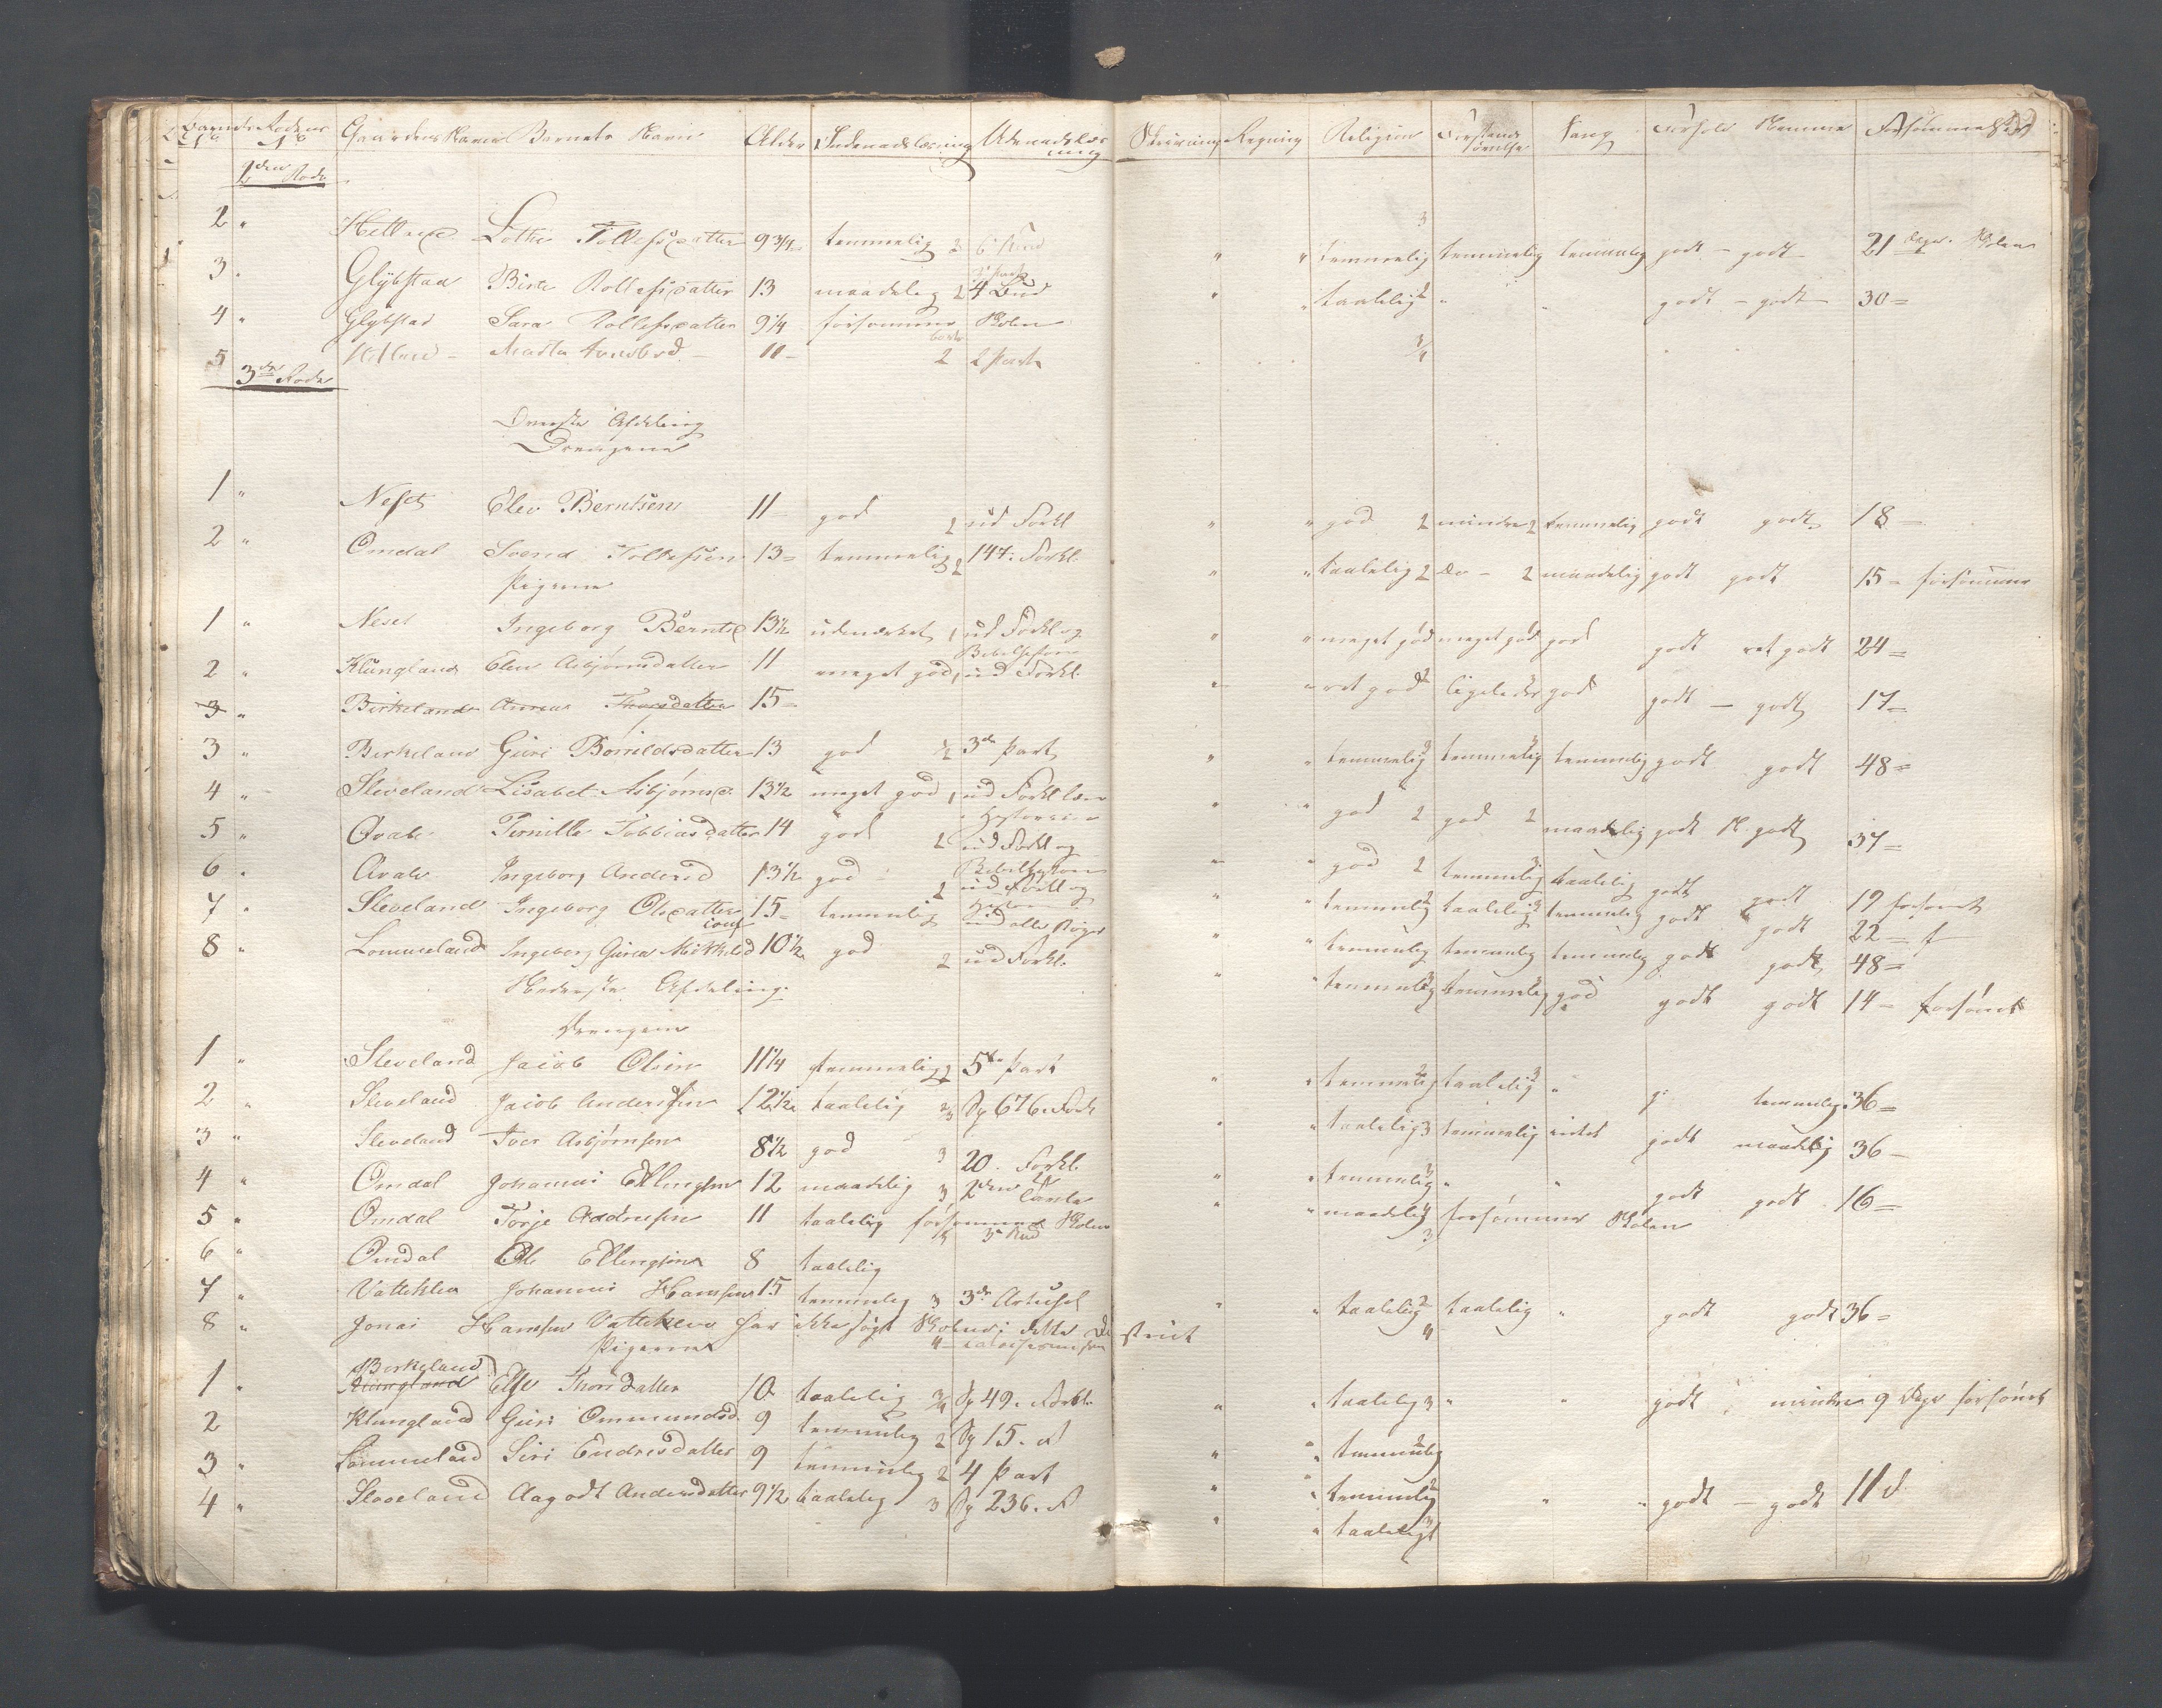 Gaardens Navn Barnets Navn Alder Indenadslæsning Udenadslæsning Skrivning Regning Religion Forstands øvelse Sang Forhold Hjemme Forsømmelser
2den Rode
2 " Lothe Tollefsdatter 9 3/4 temmelig 3 " " temmelig temmelig temmelig godt - godt 21 Dage. Skolen
3 " Glypstad Birte Rollefsdatter 13 maadelig 2 4 Bud " " taalelig 2 " " godt - godt 30 =
4 " Glypstad Sara Rollefsdatter 9 1/4 forsømmer Skolen
5 Marta 11 - 2 2 Part
3die Rode
Øverste Afdeling
Drengene
1 " Neset Elev Berntsen 11 god 2 ud Forkl " " god 2 mindre 2 temmelig godt godt 18 =
2 " Omdal Svend Tollefsen 13 = temmelig 2 147: Forkl. " " taalelig 2 do - 2 maadelig godt godt 15 = forsømmer
Pigerne
1 " Neset Ingeborg Berntsd 13 1/2 udmerket 1 ud Forkl og " " meget god meget god god godt ret godt 24 =
2 " Klungland Elen Asbjørnsdatter 11 meget god 1 ud Forkl. " " ret god 2 ligeledes god godt - godt 17 =
3 " Birkeland Anna Thorsdatter 15 =
3 " Birkeland Guri Bårreldsdatter 13 god 2 3die Part " " temmelig temmelig temmelig godt godt 48 =
4 " Sleveland Lisabet Asbjørnsd. 13 1/2 meget god 1 ud Forkl " " god 2 god 2 maadelig godt N. godt 37 =
5 " Qvale Pernille Tobbiasdatter 14 god 2 ud Forkl og " " god 2 temmelig taalelig godt godt 19 forsømt
6 " Qvale Ingeborg Andersd 13 1/2 god 2 ud Forkl og " " temmelig taalelig temmelig godt godt 22 = f
7 " Sleveland Ingeborg Olsdatter 15 = temmelig ud alle Bøger " " temmelig temmelig temmelig godt godt 48 =
conf
8 " Lommeland Ingeborg Guria Mikkelsd 10 1/2 god 2 ud Forkl. " " temmelig temmelig god godt godt 14 = forsømt
Nederste Afdeling.
Drengene
1 " Sleveland Jacob Olsen 11 1/4 temmelig 2 5te Part " " temmelig taalelig 3 " g temmelig 36 =
2 " Sleveland Jacob Andersen 12 1/2 taalelig Sp 676. Fork " " taalelig 3 temmelig intet godt maadelig 36 -
3 " Sleveland Iver Asbjørnsen 8 1/2 god 3 20. Forkl. " " temmelig " " godt godt 16 =
4 " Omdal Johannes Ellingsen 12 maadelig 3 2den " " maadelig forsømmer Skolen
5 " Omdal Torje Andresen 11 taalelig forsømmer Skolen
6 " Omdal Ole Ellingsen 8 taalelig
7 " Vatteklev Johannes Hansen 15 temmelig 3 3die Artikel " " taalelig 2 taalelig " godt godt 36 =
8 " Jonas Hansen Vatteklev har ikke søgt Skolen i dette Distrikt
Pigerne
Birkeland
1 " Klungland Else Thorsdatter 10 taalelig Sp 49. Forkl. " " taalelig 3 " " godt mindre 9 Dage forsømt
2 Klungland Guri Ommundsd. 9 temmelig 2 Sp 15. F " " temmelig
3 " Lommeland Siri Endresdatter 9 temmelig 2 4 Part " " temmelig " " godt - godt 11 d.
4 " Sleveland Aagodt Andersdatter 9 1/2 taalelig 3 Sp 236. F " " taaleligt